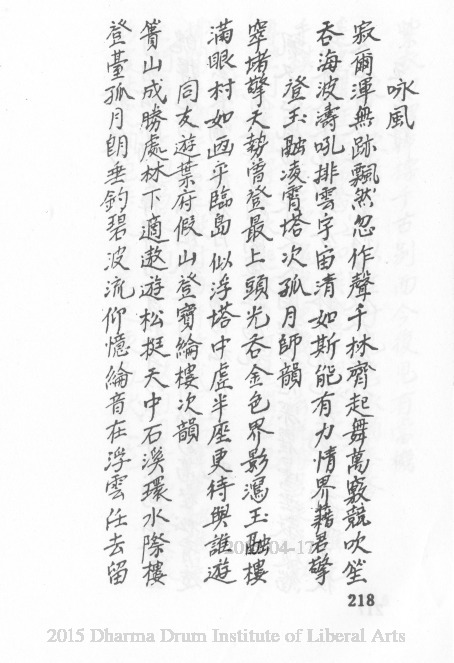 咏風
寂爾渾無跡飄然忽作聲千林齊起舞萬竅競吹笙
吞海波濤吼排雲宇宙清如斯能有力情界藉君擎
登玉融凌霄塔次孤月師韻
窣堵擎天勢曾登最上頭光吞金色界影瀉玉融樓
滿眼村如画平臨島似浮塔中虛半座更待與誰遊
同友遊葉府假山登寶綸樓次韻
簣山成勝處林下適遨遊松挺天中石溪環水際樓
登臺孤月朗垂釣碧波流仰憶綸音在浮雲任去留
218
2015 Dharma Drum Institute of Liberal Arts